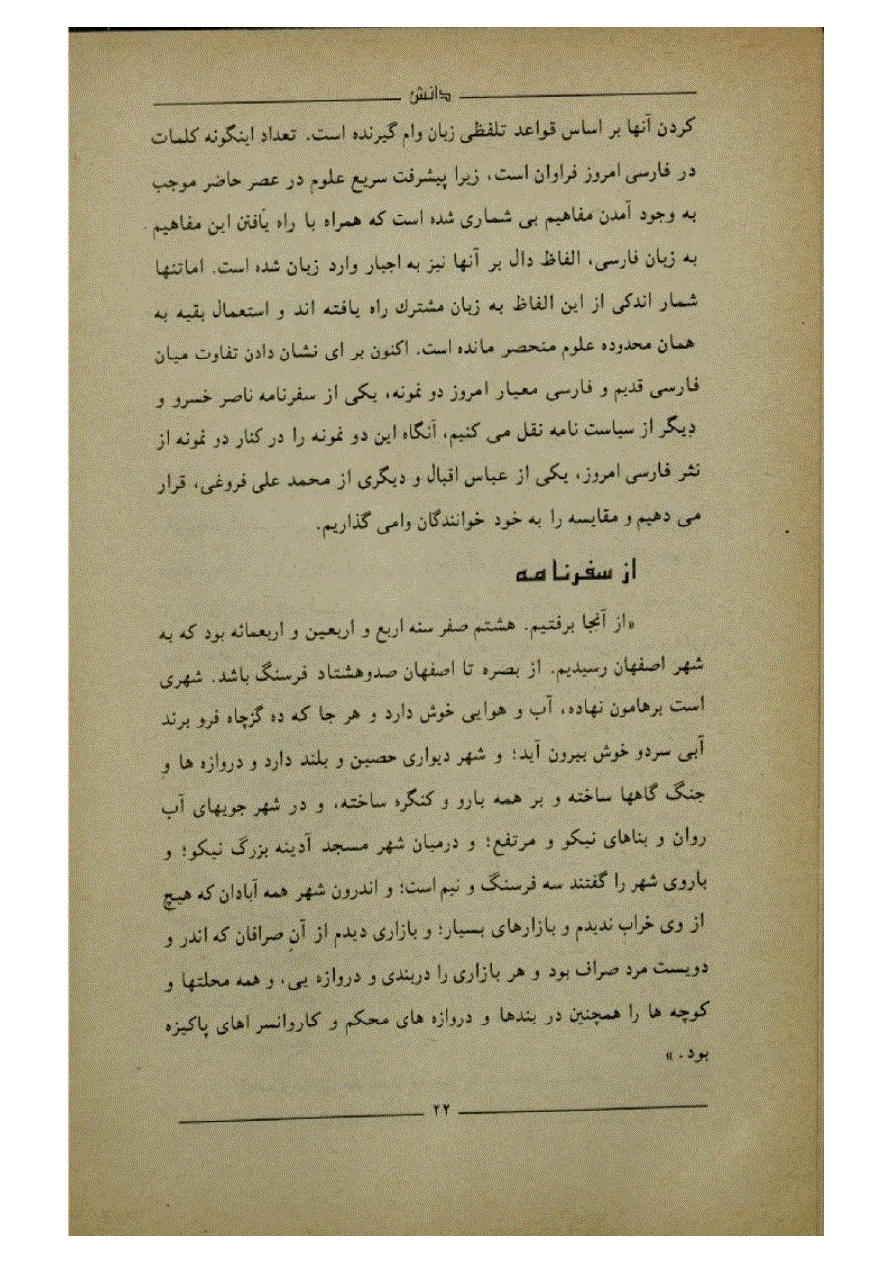 دانش
کردن آنها بر اساس قواعد تلفظی زبان وام گیرنده است. تعداد اینگونه کلمات
در فارسی امروز فراوان است، زیرا پیشرفت سریع علوم در عصر حاضر موجب
به وجود آمدن مفاهیم بی شماری شده است که همراه با راه یافتن این مفاهیم
به زبان فارسی، الفاظ دال بر آنها نیز به اجبار وارد زبان شده است. اماتنها
شمار اندکی از این الفاظ به زبان مشترك راه یافته اند و استعمال بقیه به
همان محدوده علوم منحصر مانده است. اکنون بر ای نشان دادن تفاوت میان
فارسی قدیم و فارسی معیار امروز دو نمونه، یکی از سفرنامه ناصر خسرو و
دیگر از سیاست نامه نقل می کنیم، آنگاه این دو نمونه را در کنار دو نمونه از
نثر فارسی امروز، یکی از عباس اقبال و دیگری از محمد علی فروغی، قرار
می دهیم و مقایسه را به خود خوانندگان وامی گذاریم.
از سفرنامه
«از آنجا برفتیم. هشتم صفر سنه اربع و اربعین و اربعمائه بود که به
شهر اصفهان رسیدیم. از بصره تا اصفهان صدوهشتاد فرسنگ باشد. شهری
است برهامون نهاده، آب و هوایی خوش دارد و هر جا که ده گزچاه فرو برند
آبی سردو خوش بیرون آید؛ و شهر دیواری حصین و بلند دارد و دروازه ها و
جنگ گاهها ساخته و بر همه بارو و کنگره ساخته، و در شهر جویهای آب
روان و بناهای نیکو و مرتفع؛ و درمیان شهر مسجد آدینه بزرگ نیکو؛ و
باروی شهر را گفتند سه فرسنگ و نیم است؛ و اندرون شهر همه آبادان که هیچ
از وی خراب ندیدم و بازارهای بسیار؛ و بازاری دیدم از آنِ صرافان که اندر و
دویست مرد صراف بود و هر بازاری را دربندی و دروازه یی، و همه محلتها و
کوچه ها را همچنین در بندها و دروازه های محکم و کاروانسر اهای پاکیزه
بود. »
۲۲